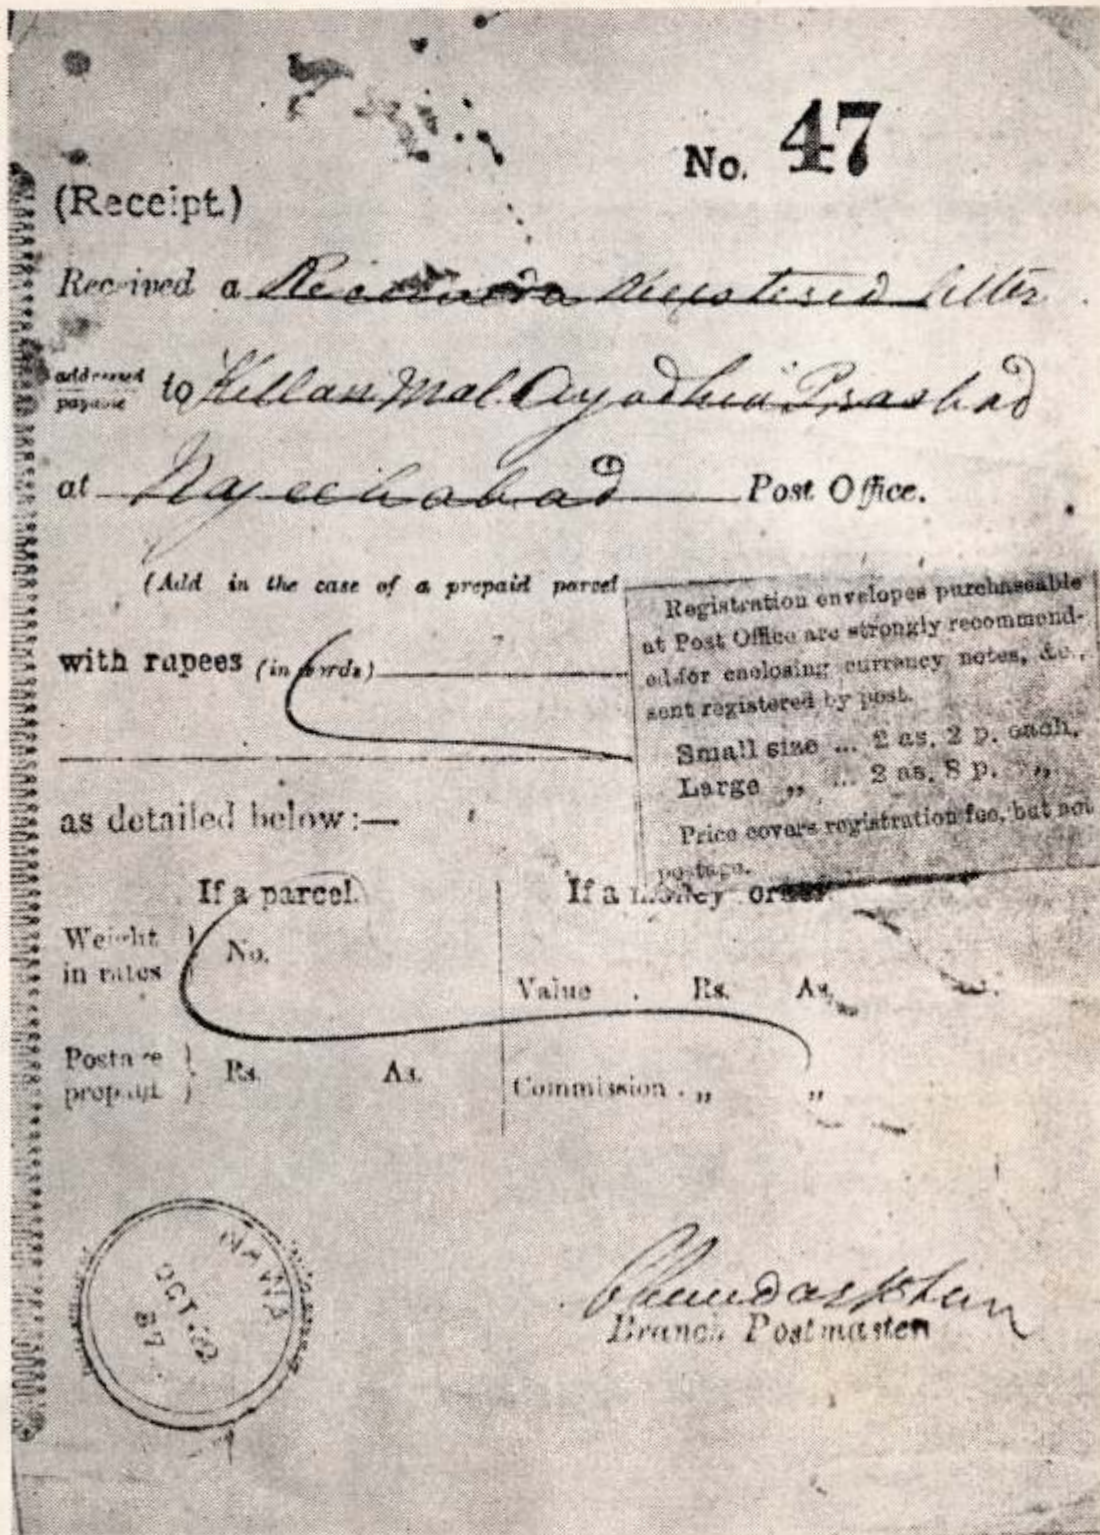 No. 47
(Receipt.)
Received a Registered letter
addressed
payable to Killan Mal Ayodhia Prashad
at Najeebabad Post Office.
(Add in the case of a prepaid parcel
with rupees (in words)
Registration envelopes purchaseable
at Post Office are strongly recommend-
ed for enclosing currency notes, &c.,
sent registered by post.
Small size ... 2 as. 2 p. each.
Large „ ... 2 as. 8 p. „
Price covers registration fee, but not
postage.
as detailed below:—
If a parcel.
If a money order
Weight
in rates } No.
Value . Rs. As.
Postage
prepaid } Rs. As.
Commission . „ „
NAWIA
OCT. 22
87
Branch Postmaster